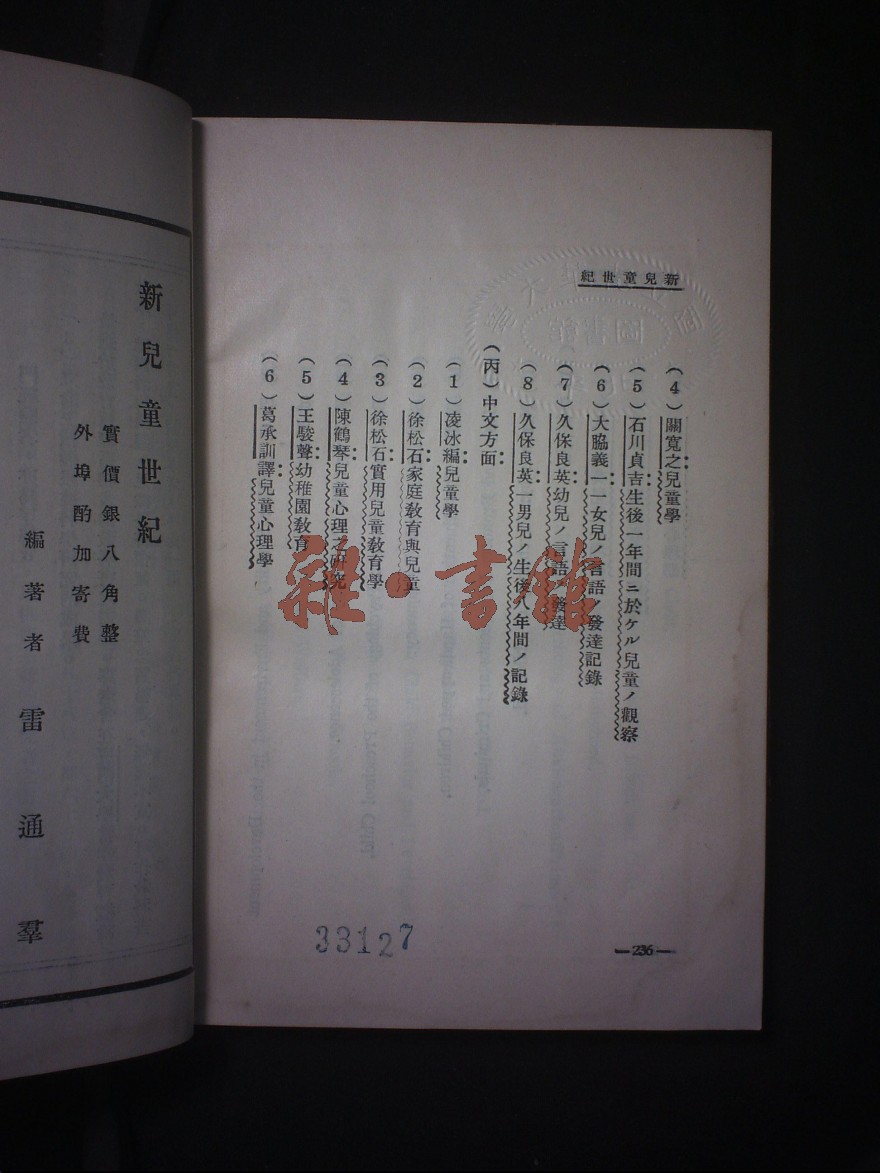 新兒童世紀
(4)關寬之兒童學
(5)石川貞吉生後一年間ニ於ケル兒童ノ觀察
(6)大脇義一一女兒ノ言語ノ發達記錄
(7)久保良英幼兒ノ言語ノ發達
(8)久保良英一男兒ノ生後八年間ノ記錄
(丙)中文方面
(1)凌冰編兒童學
(2)徐松石家庭敎育與兒童
(3)徐松石實用兒童敎育學
(4)陳鶴琴兒童心理之硏究
(5)王駿聲幼稚園敎育
(6)葛承訓譯兒童心理學
—236—
33127
圖書館
雜·書館
新兒童世紀
實價銀八角整
外埠酌加寄費
編著者 雷通羣